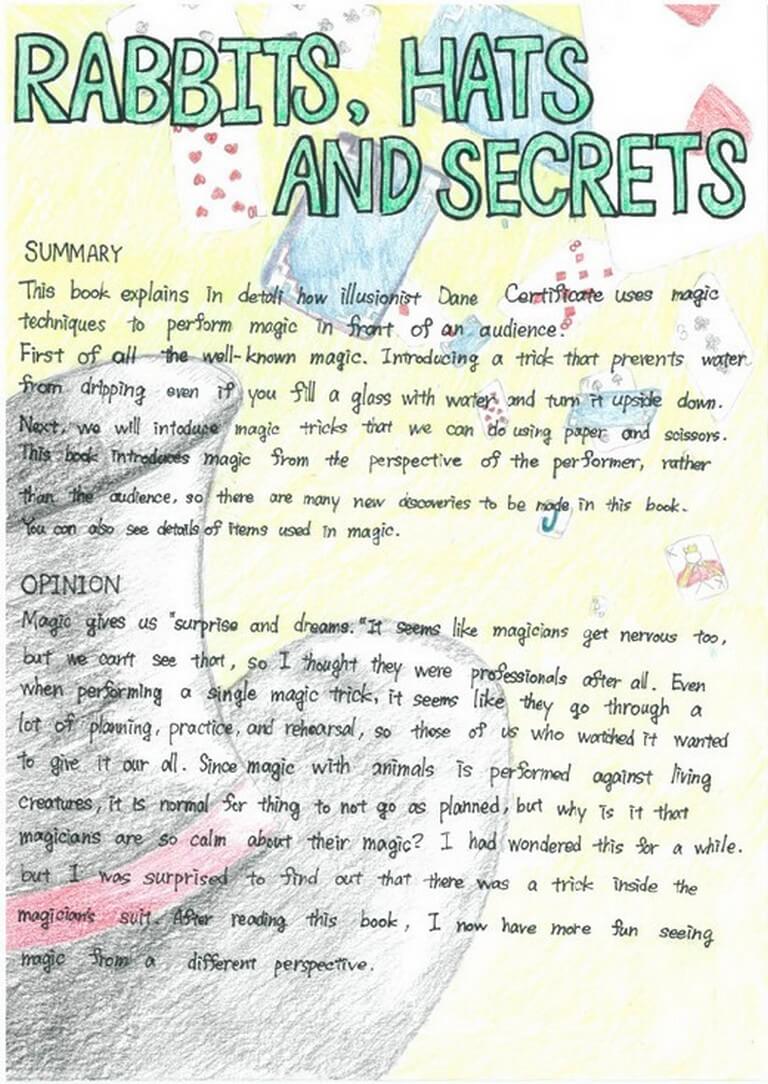 RABBITS, HATS
AND SECRETS
SUMMARY
This book explains in detail how illusionist Dane Certificate uses magic
techniques to perform magic in front of an audience.
First of all the well-known magic. Introducing a trick that prevents water
from dripping even if you fill a glass with water and turn it upside down.
Next, we will intoduce magic tricks that we can do using paper and scissors.
This book introduces magic from the perspective of the performer, rather
than the audience, so there are many new discoveries to be made in this book.
You can also see details of items used in magic.
OPINION
Magic gives us "surprise and dreams." It seems like magicians get nervous too,
but we can't see that, so I thought they were professionals after all. Even
when performing a single magic trick, it seems like they go through a
lot of planning, practice, and rehearsal, so those of us who watched it wanted
to give it our all. Since magic with animals is performed against living
creatures, it is normal for thing to not go as planned, but why is it that
magicians are so calm about their magic? I had wondered this for a while.
but I was surprised to find out that there was a trick inside the
magician's suit. After reading this book, I now have more fun seeing
magic from a different perspective.